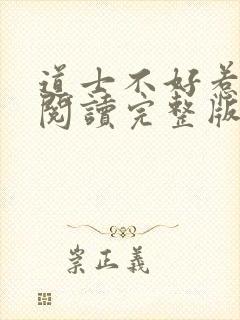 道士不好惹
閱讀完整版
崇正義